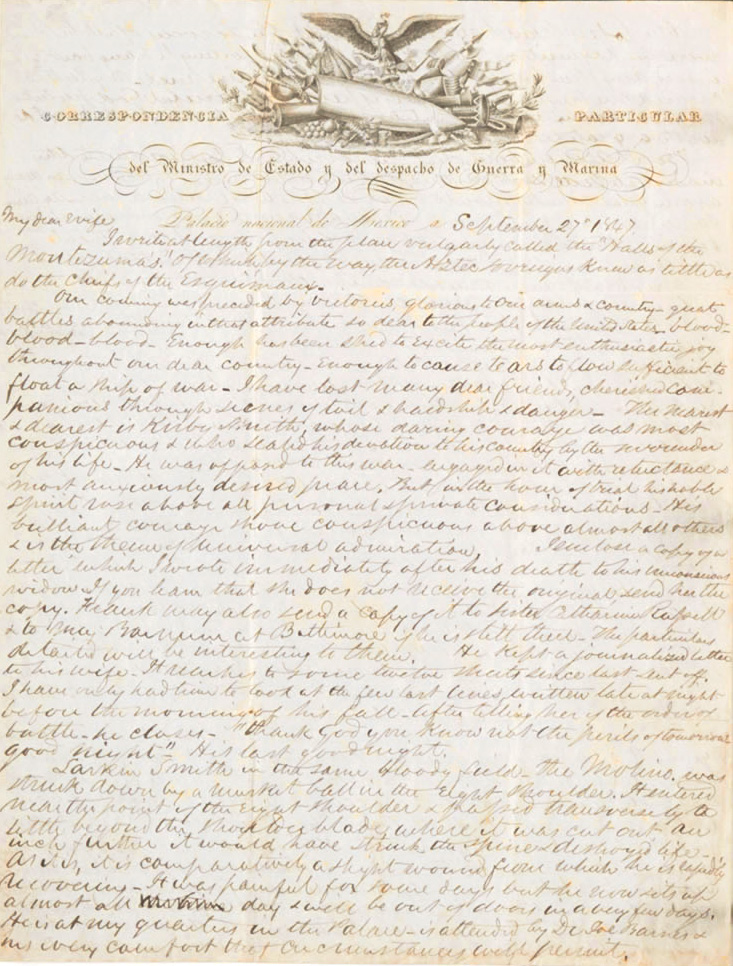 CORRESPONDENCIA PARTICULAR
del Ministro de Estado y del despacho de Guerra y Marina
Palacio nacional de Mexico a September 27th 1847.
My dear wife
I write at length from the place vulgarly called the "Halls of the
Montezumas." Of which by the way the Aztec sovereigns knew as little as
do the Chiefs of the Esquimaux.
Our coming was preceded by victories, glorious to our arms & country - great
battles abounding in that attribute so dear to the people of the United States - blood -
blood - blood - Enough has been shed to excite the most enthusiastic joy
throughout our dear country - Enough to cause tears to flow sufficient to
float a ship of war - I have lost many dear friends, cherished com-
panions through scenes of toil & hardship & danger - The nearest
& dearest is Kirby Smith, whose daring courage was most
conspicuous & who sealed his devotion to his country by the surrender
of his life - He was opposed to this war - engaged in it with reluctance &
most anxiously desired peace. But in the hour of trial his noble
spirit rose above all personal & private considerations - His
brilliant courage shone conspicuous above almost all others
& is the theme of universal admiration. I enclose a copy of a
letter which I wrote immediately after his death to his unconscious
widow. If you learn that she does not receive the original send her the
copy. Frank may also send a copy of it to sister Catharine Russell
& to Baltimore if she is still there - The particulars
detailed will be interesting to them. He kept a journalized letter
to his wife - It reaches to some twelve sheets since last sent off.
I have only had time to look at the few last lines, written late at night
before the morning of his fall - after telling her of the order of
battle - he closes - "thank God you know not the perils of tomorrow
good night." His last good night.
Larkin Smith in the same bloody field - the Molino, was
struck down by a musket ball in the right shoulder. It entered
near the point of the right shoulder & passed transversely to a
little beyond the shoulder blade, where it was cut out - an
inch further it would have struck the spine & destroyed life -
As it is, it is comparatively a slight wound from which he is rapidly
recovering - It was painful for some days but he now sits up
almost all day & will be out of doors in a very few days.
He is at my quarters in the Palace - is attended by Dr. Joe Barnes &
has every comfort that circumstances will permit.